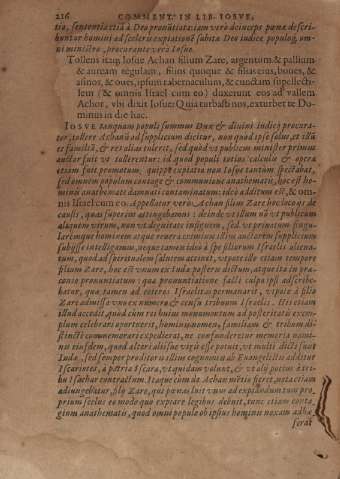 216 COMMENT. IN LIB. IOSVE,
tio, sententia etiā à Deo pronūtiata: iam verò deinceps pœna descri-
buntur homini ac sceleris expiatione subita Deo iudice populoq. om-
ni ministro, procurante verò Iosue.
Tollens itaq; Iosue Achan filium Zare, argentum & pallium
& auream regulam, filios quoque & filias eius, boues, &
asinos, & oues, ipsum tabernaculum, & cunctam supellecti-
lem (& omnis Israel cum eo) duxerunt eos ad vallem
Achor, vbi dixit Iosue: Quia turbasti nos, exturbet te Do-
minus in die hac.
IOSVE tanquam populi summus Dux & diuini iudicij procura-
tor, tollere Achan ad supplicium dicitur, non quòd ipse solus, et illū
et familiā, & res alias tulerit, sed quòd vt publicum minister primus
auctor fuit vt tollerentur: id quod populi totius calculo & opera
etiam fuit peractum, quippe expiatio non Iosue tantùm spectabat,
sed omnem populum contage & communione anathematis, hoc est ho-
minis anathemate damnati contaminatum: ideo additum est, & om-
nis Israel cum eo. Appellatur verò Achan filius Zare hoc loco ijs de
causis, quas superiùs attingebamus: deinde vt illum nō vt publicum
aliquem virum, non vt degentem insignem, sed vt priuatum singu-
laremque hominem atque reum eximium auctorem supplicium
subijsse intelligamus, neque tamen ideo à spe filiorum Israelis aliena-
tum, quod ad spiritualem salutem attinet, vtpote ille etiam tempore
filium Zare, hoc est vnum ex Iuda posteris dictum, atque ita in præ-
conio pronuntiatum:
Zare admisse vnu ex numero & censu tribuum Israelis. His etiam
illud accedit, quòd cum rei huius monumentum ad posteritatis exem-
plum celebrari oporteret, hominis nomen, familiam & tribum di-
stinctè commemorare expediebat, ne confunderetur memoria nomi-
nis eiusdem, quod
Iuda, sed semper proditoris illius cognomen ab Euangelistis additur
Iscariotes, à patria Iscara, vt quidam volunt, & vt alij potius à tri-
bu Isachar contractum. Itaque cum de Achan mētio fieret, notæ etiam
adiungebatur, filij Zare, qui pœnas luit vnus ad expiandum tum pro-
prium scelus eo modo quo expiare legibus debuit, tunc etiam conta-
gium anathematis, quod omni populo ob ipsius hominis noxam adhæ-
serat